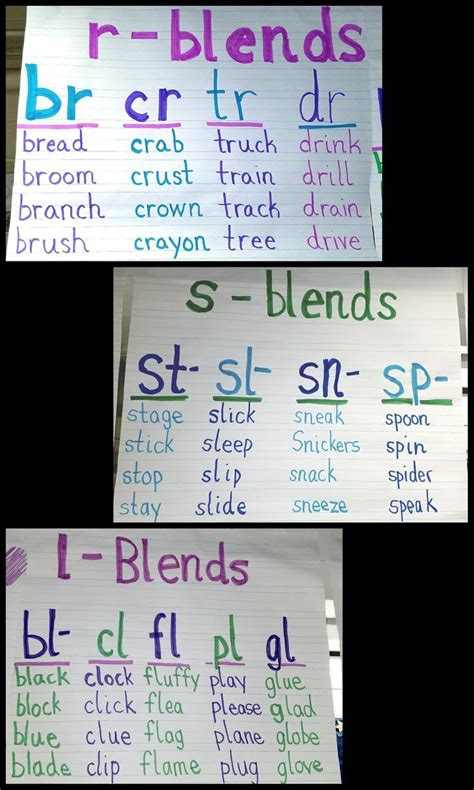 r-blends
br cr tr dr
bread crab truck drink
broom crust train drill
branch crown track drain
brush crayon tree drive
s-blends
st- sl- sn- sp-
stage slick sneak spoon
stick sleep Snickers spin
stop slip snack spider
stay slide sneeze speak
l-Blends
bl- cl fl pl gl
black clock fluffy play glue
block click flea please glad
blue clue flag plane globe
blade clip flame plug glove